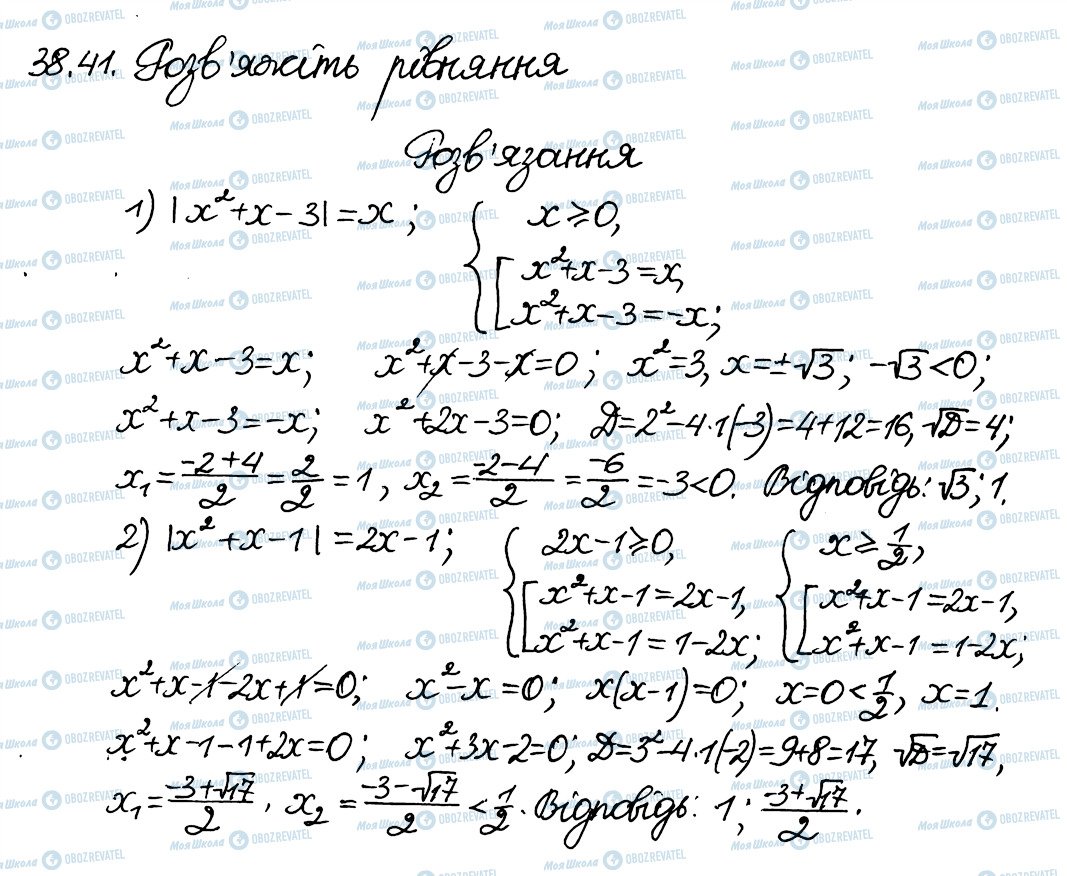 38.41. Розв'яжіть рівняння
Розв'язання
1) |x²+x-3|=x; { x⩾0, [ x²+x-3=x, x²+x-3=-x;
x²+x-3=x; x²+x-3-x=0; x²=3, x=±√3; -√3<0;
x²+x-3=-x; x²+2x-3=0; D=2²-4·1(-3)=4+12=16, √D=4;
x₁=(-2+4)/2=2/2=1, x₂=(-2-4)/2=-6/2=-3<0. Відповідь: √3; 1.
2) |x²+x-1|=2x-1; { 2x-1⩾0, [ x²+x-1=2x-1, x²+x-1=1-2x; { x⩾1/2, [ x²+x-1=2x-1, x²+x-1=1-2x;
x²+x-1-2x+1=0; x²-x=0; x(x-1)=0; x=0<1/2, x=1.
x²+x-1-1+2x=0; x²+3x-2=0; D=3²-4·1(-2)=9+8=17, √D=√17,
x₁=(-3+√17)/2, x₂=(-3-√17)/2<1/2. Відповідь: 1; (-3+√17)/2.
Моя Школа OBOZREVATEL